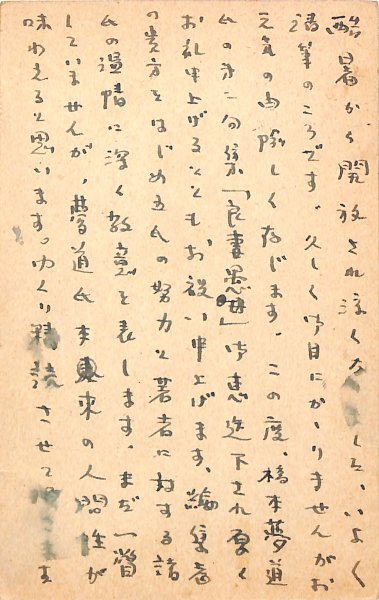 酷暑から開放され涼しくなりました、いよく
読筆のころです。久しく御目にかゝりませんがお
元気の由隙しく存じます。この度、橋本夢道
氏の第二句集「良妻愚母」御恵送下され厚く
お礼申上げるとともにお祝い申上げます、編集者
の貴方をはじめ五氏の努力と著者に対する諸
氏の温情に深く敬意を表します。まだ一瞥
していませんが、夢道氏本来の人間性が
味わえると思います。ゆくり精読させて